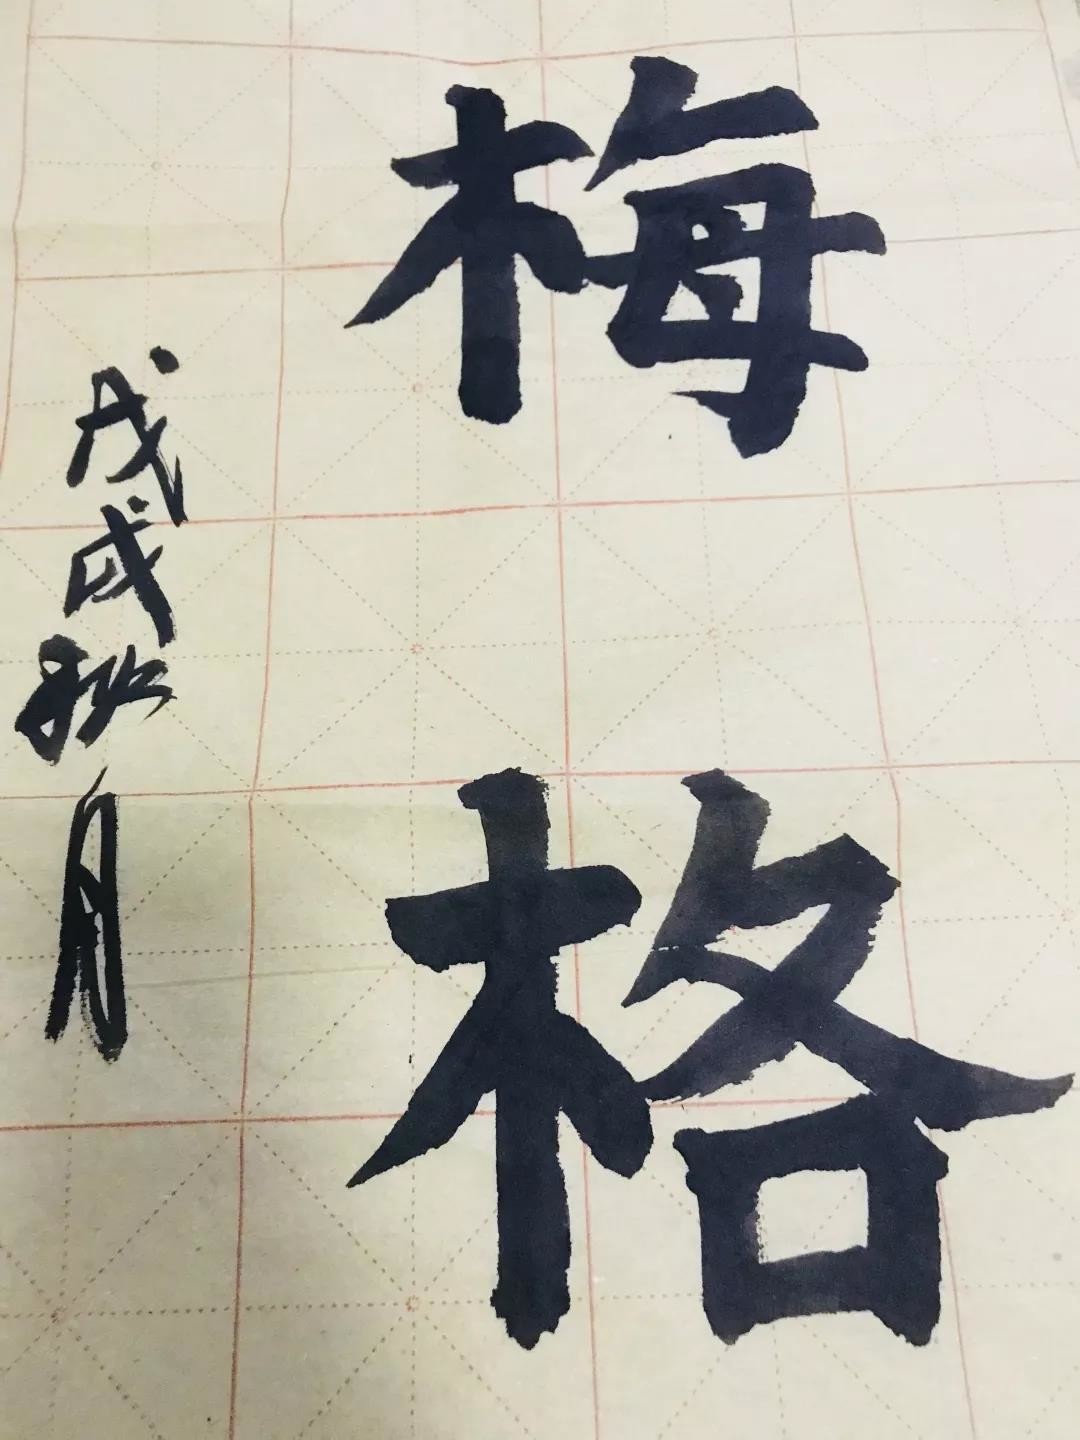 梅格
戊戌秋月